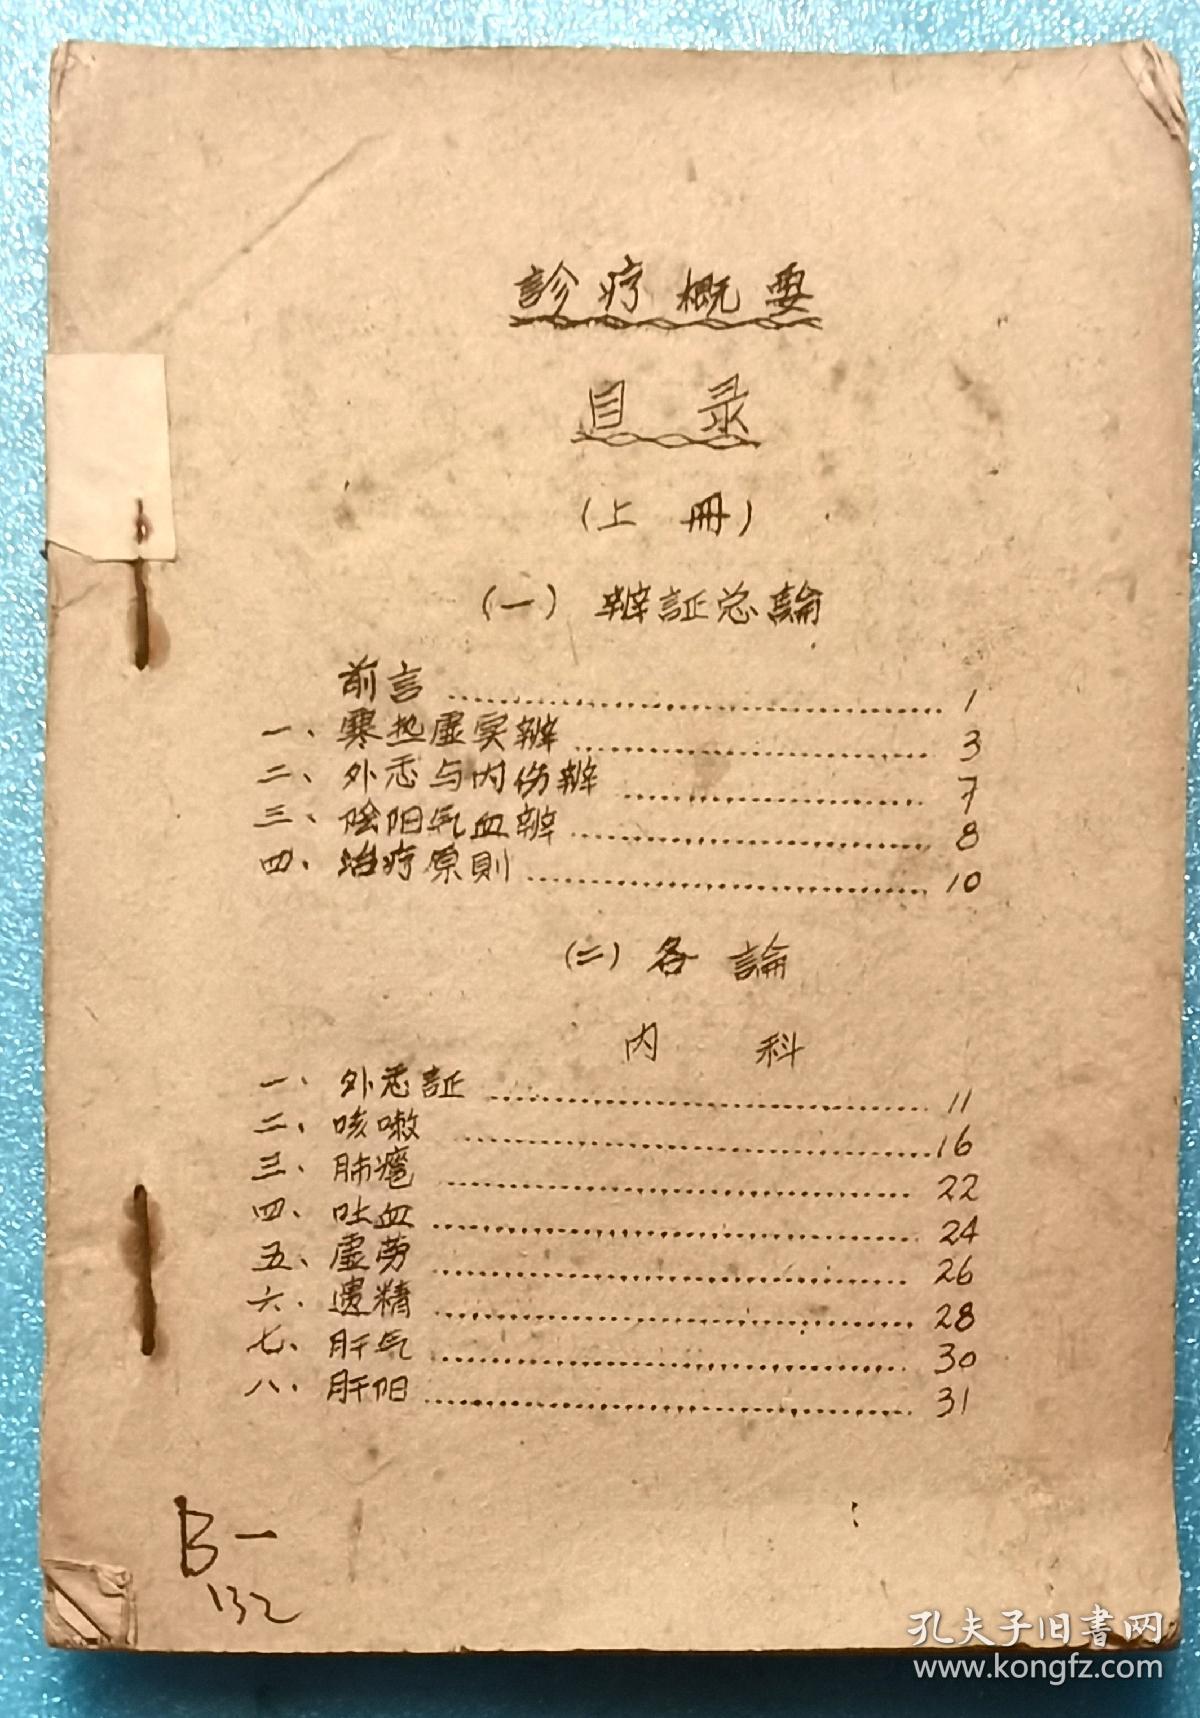 診疗概要
目录
(上冊)
(一) 辨証总論
前言 1
一、寒热虚实辨 3
二、外感与内伤辨 7
三、陰阳气血辨 8
四、治疗原則 10
(二) 各論
内科
一、外感証 11
二、咳嗽 16
三、肺癰 22
四、吐血 24
五、虚劳 26
六、遗精 28
七、肝气 30
八、肝阳 31
B一
132
孔夫子旧書网
www.kongfz.com